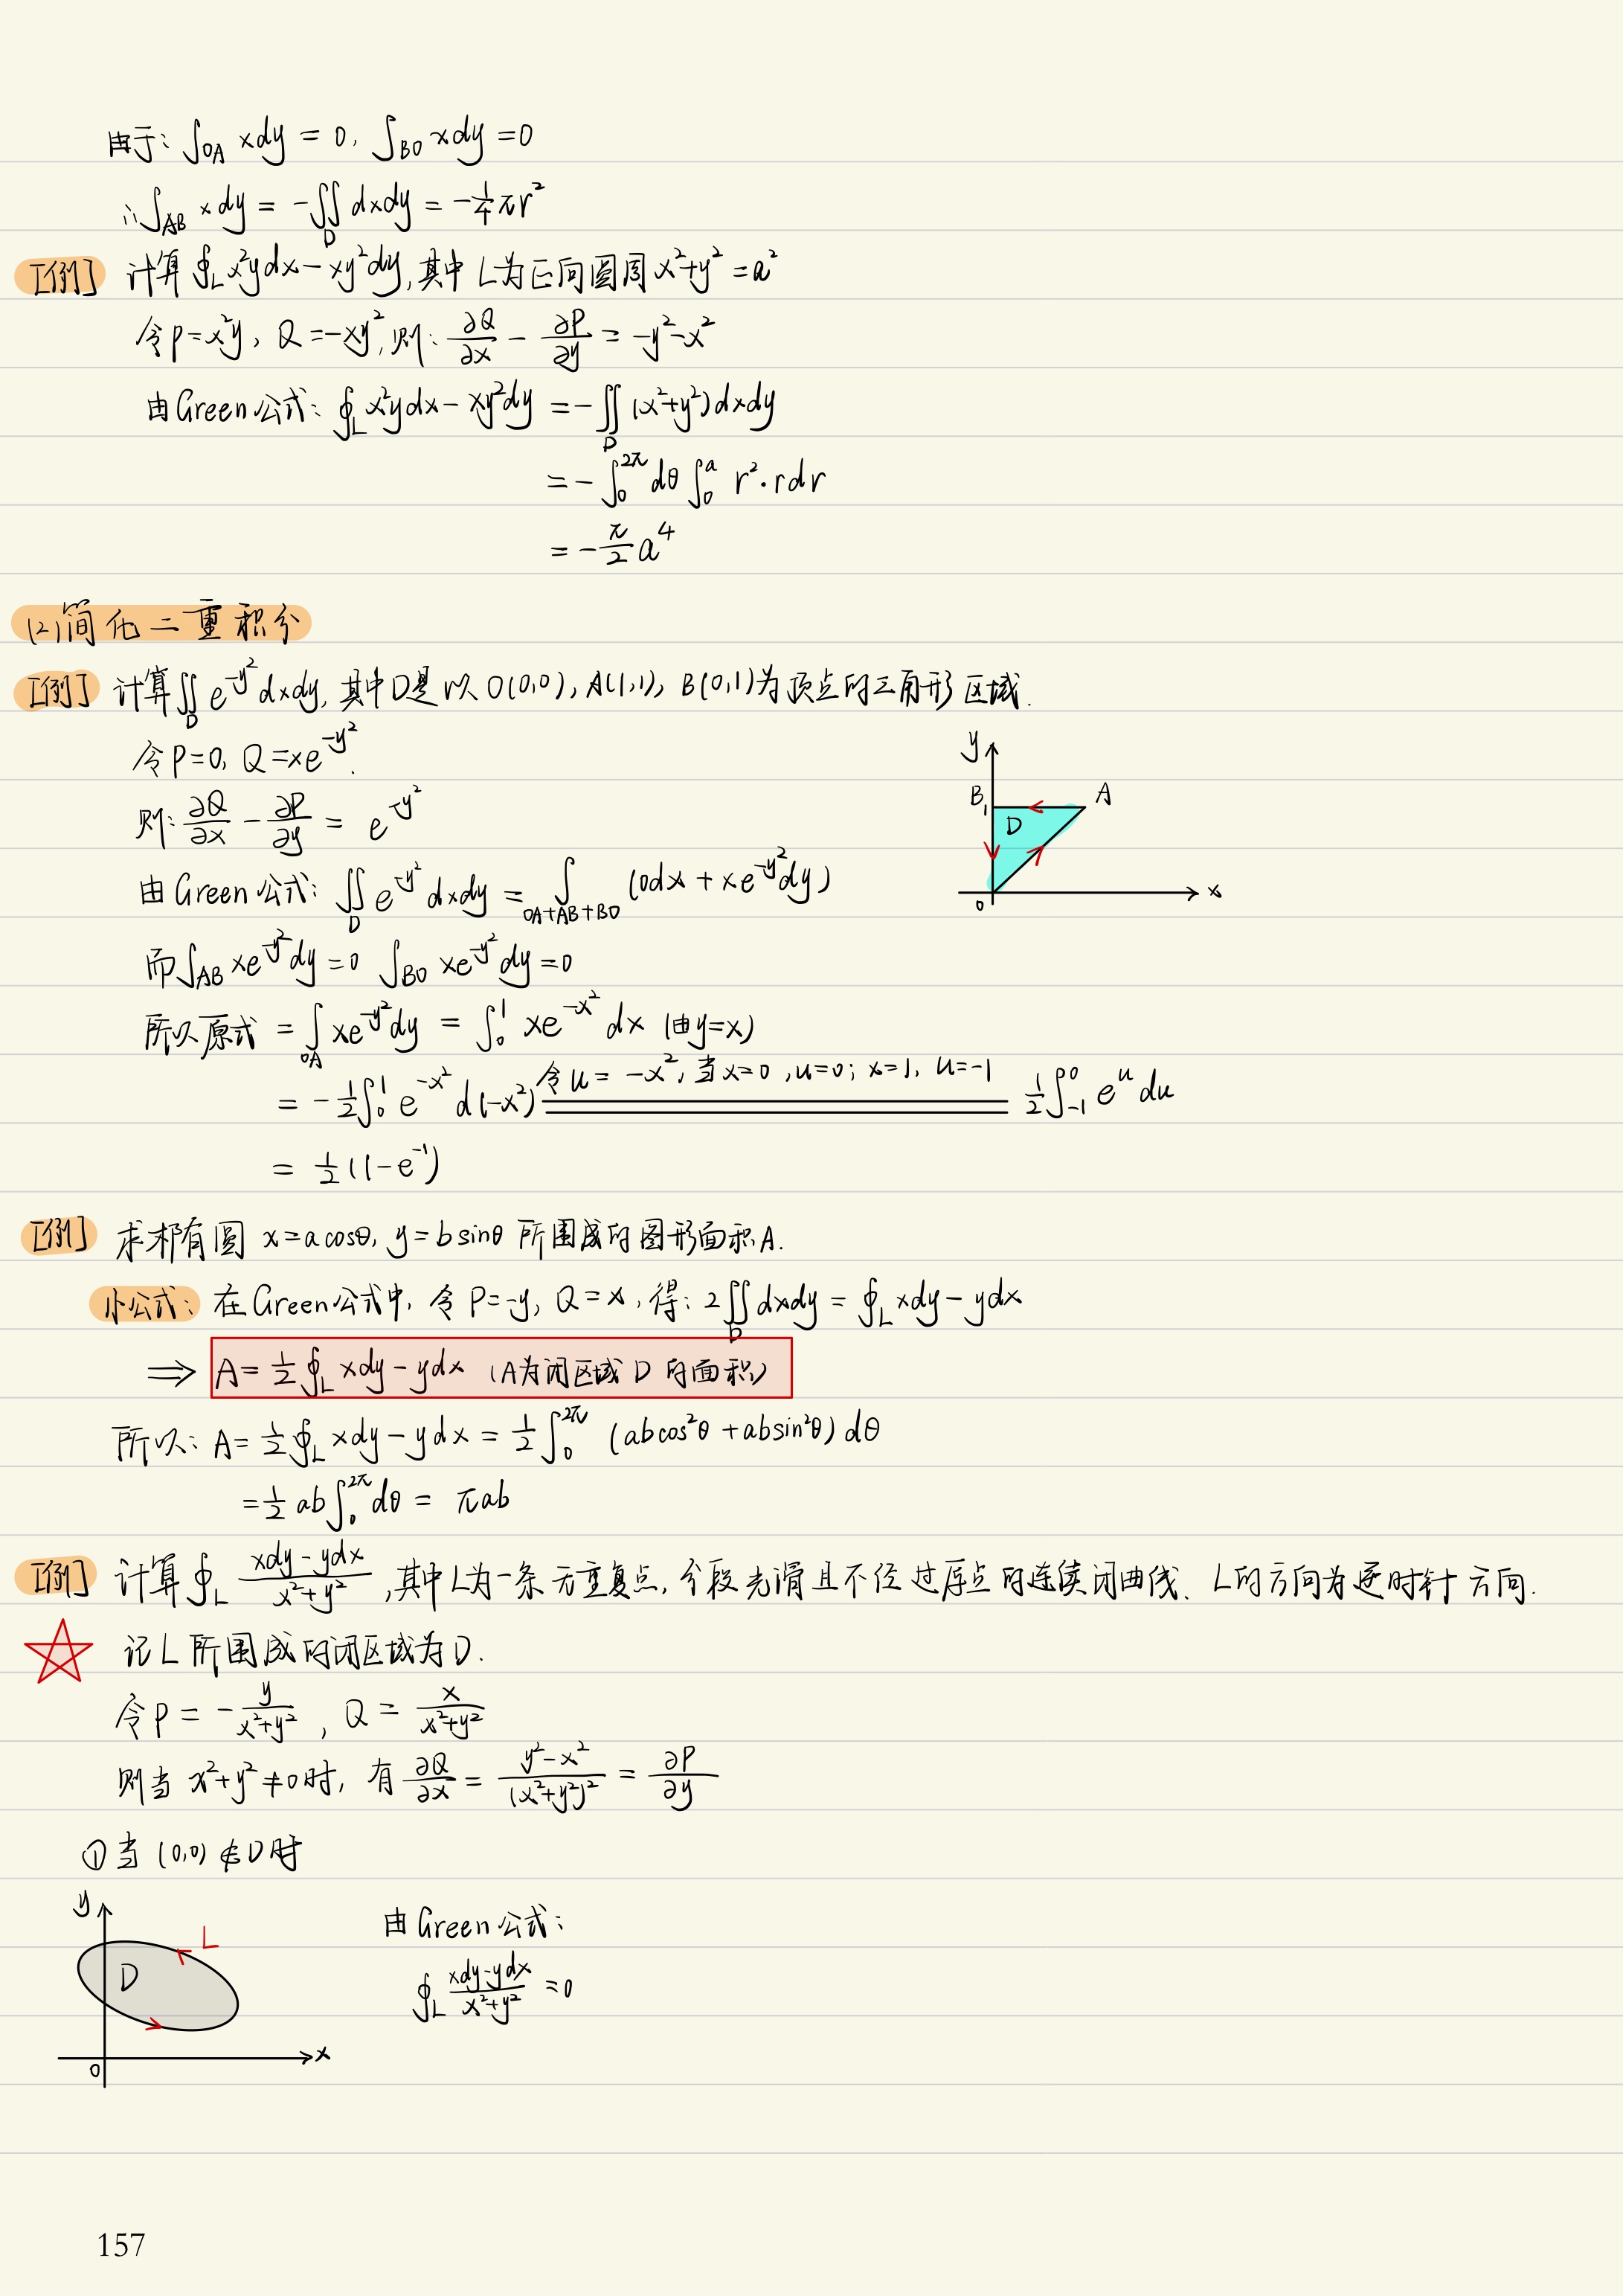 由于: ∫_{OA} xdy = 0, ∫_{BO} xdy = 0
∴ ∫_{AB} xdy = -∬_D dxdy = -1/4 πr²
[例] 计算 ∮_L x²ydx - xy²dy, 其中 L为正向圆周 x²+y²=a²
令P=x²y, Q=-xy², 则: ∂Q/∂x - ∂P/∂y = -y²-x²
由Green公式: ∮_L x²ydx - xy²dy = -∬_D (x²+y²)dxdy
= -∫_0^{2π} dθ ∫_0^a r²·rdr
= -π/2 a⁴
(2)简化二重积分
[例] 计算∬_D e^{-y²} dxdy, 其中D是以O(0,0), A(1,1), B(0,1)为顶点的三角形区域.
令P=0, Q=xe^{-y²}.
则: ∂Q/∂x - ∂P/∂y = e^{-y²}
由Green公式: ∬_D e^{-y²} dxdy = ∫_{OA+AB+BO} (0dx + xe^{-y²}dy)
y
B
1
A
D
0
x
而∫_{AB} xe^{-y²}dy=0 ∫_{BO} xe^{-y²}dy=0
所以原式 = ∫_{OA} xe^{-y²}dy = ∫_0^1 xe^{-x²} dx (由y=x)
= -1/2 ∫_0^1 e^{-x²} d(-x²) 令u=-x², 当x=0, u=0; x=1, u=-1 1/2 ∫_{-1}^0 e^u du
= 1/2 (1-e^{-1})
[例] 求椭圆 x=acosθ, y=bsinθ 所围成的图形面积A.
小公式: 在Green公式中, 令P=-y, Q=x, 得: 2∬_D dxdy = ∮_L xdy - ydx
⇒ A = 1/2 ∮_L xdy - ydx (A为闭区域D的面积)
所以: A = 1/2 ∮_L xdy - ydx = 1/2 ∫_0^{2π} (abcos²θ + absin²θ) dθ
= 1/2 ab ∫_0^{2π} dθ = πab
[例] 计算∮_L (xdy-ydx)/(x²+y²), 其中L为一条无重复点, 分段光滑且不经过原点的连续闭曲线. L的方向为逆时针方向.
记L所围成的闭区域为D.
令P = -y/(x²+y²), Q = x/(x²+y²)
则当 x²+y²≠0时, 有 ∂Q/∂x = (y²-x²)/(x²+y²)² = ∂P/∂y
①当 (0,0)∉D时
y
L
D
0
x
由Green公式:
∮_L (xdy-ydx)/(x²+y²) = 0
157